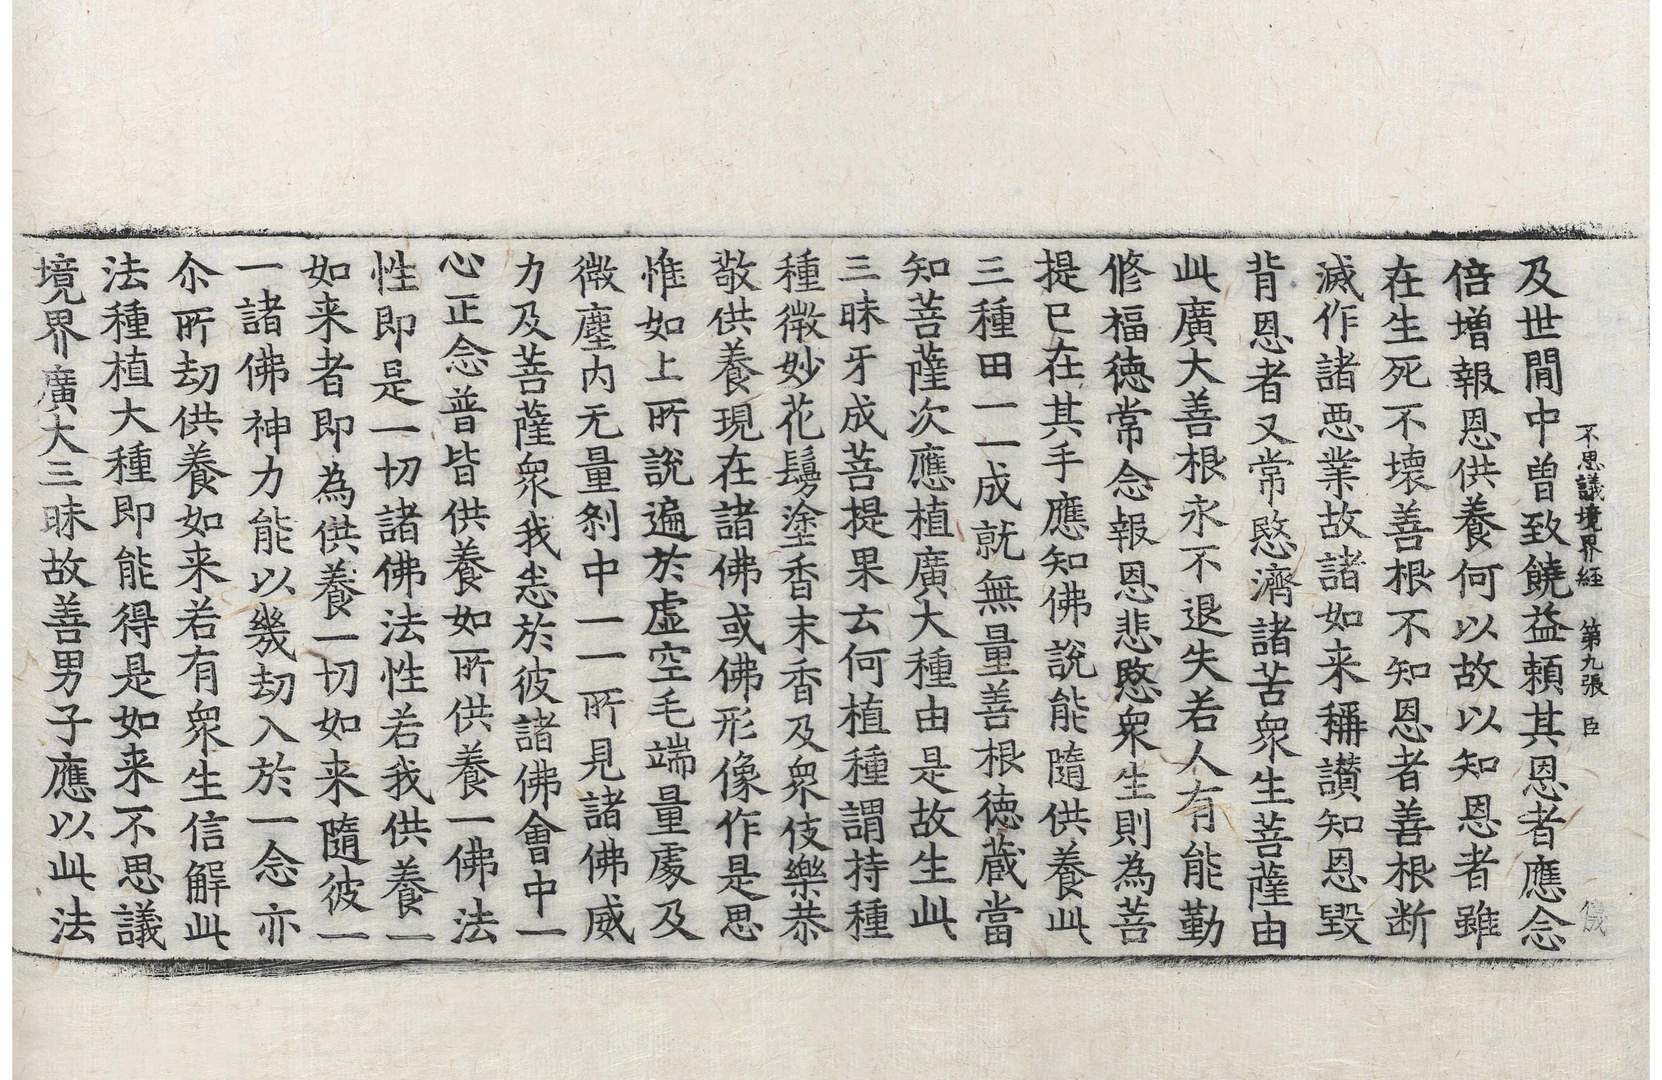 不思議境界経 第九張 臣 儀
及世間中曽致饒益頼其恩者應念
倍増報恩供養何以故以知恩者雖
在生死不壊善根不知恩者善根断
滅作諸悪業故諸如来稱讃知恩毀
背恩者又常愍濟諸苦衆生菩薩由
此廣大善根永不退失若人有能勤
修福徳常念報恩悲愍衆生則為菩
提已在其手應知佛説能隨供養此
三種田一一成就無量善根徳蔵當
知菩薩次應植廣大種由是故生此
三昧牙成菩提果云何植種謂持種
種微妙花鬘塗香末香及衆伎樂恭
敬供養現在諸佛或佛形像作是思
惟如上所説遍於虚空毛端量處及
微塵内无量刹中一一所見諸佛威
力及菩薩衆我悉於彼諸佛會中一
心正念普皆供養如所供養一佛法
性即是一切諸佛法性若我供養一
如来者即為供養一切如来隨彼一
一諸佛神力能以幾劫入於一念亦
尒所劫供養如来若有衆生信解此
法種植大種即能得是如来不思議
境界廣大三昧故善男子應以此法